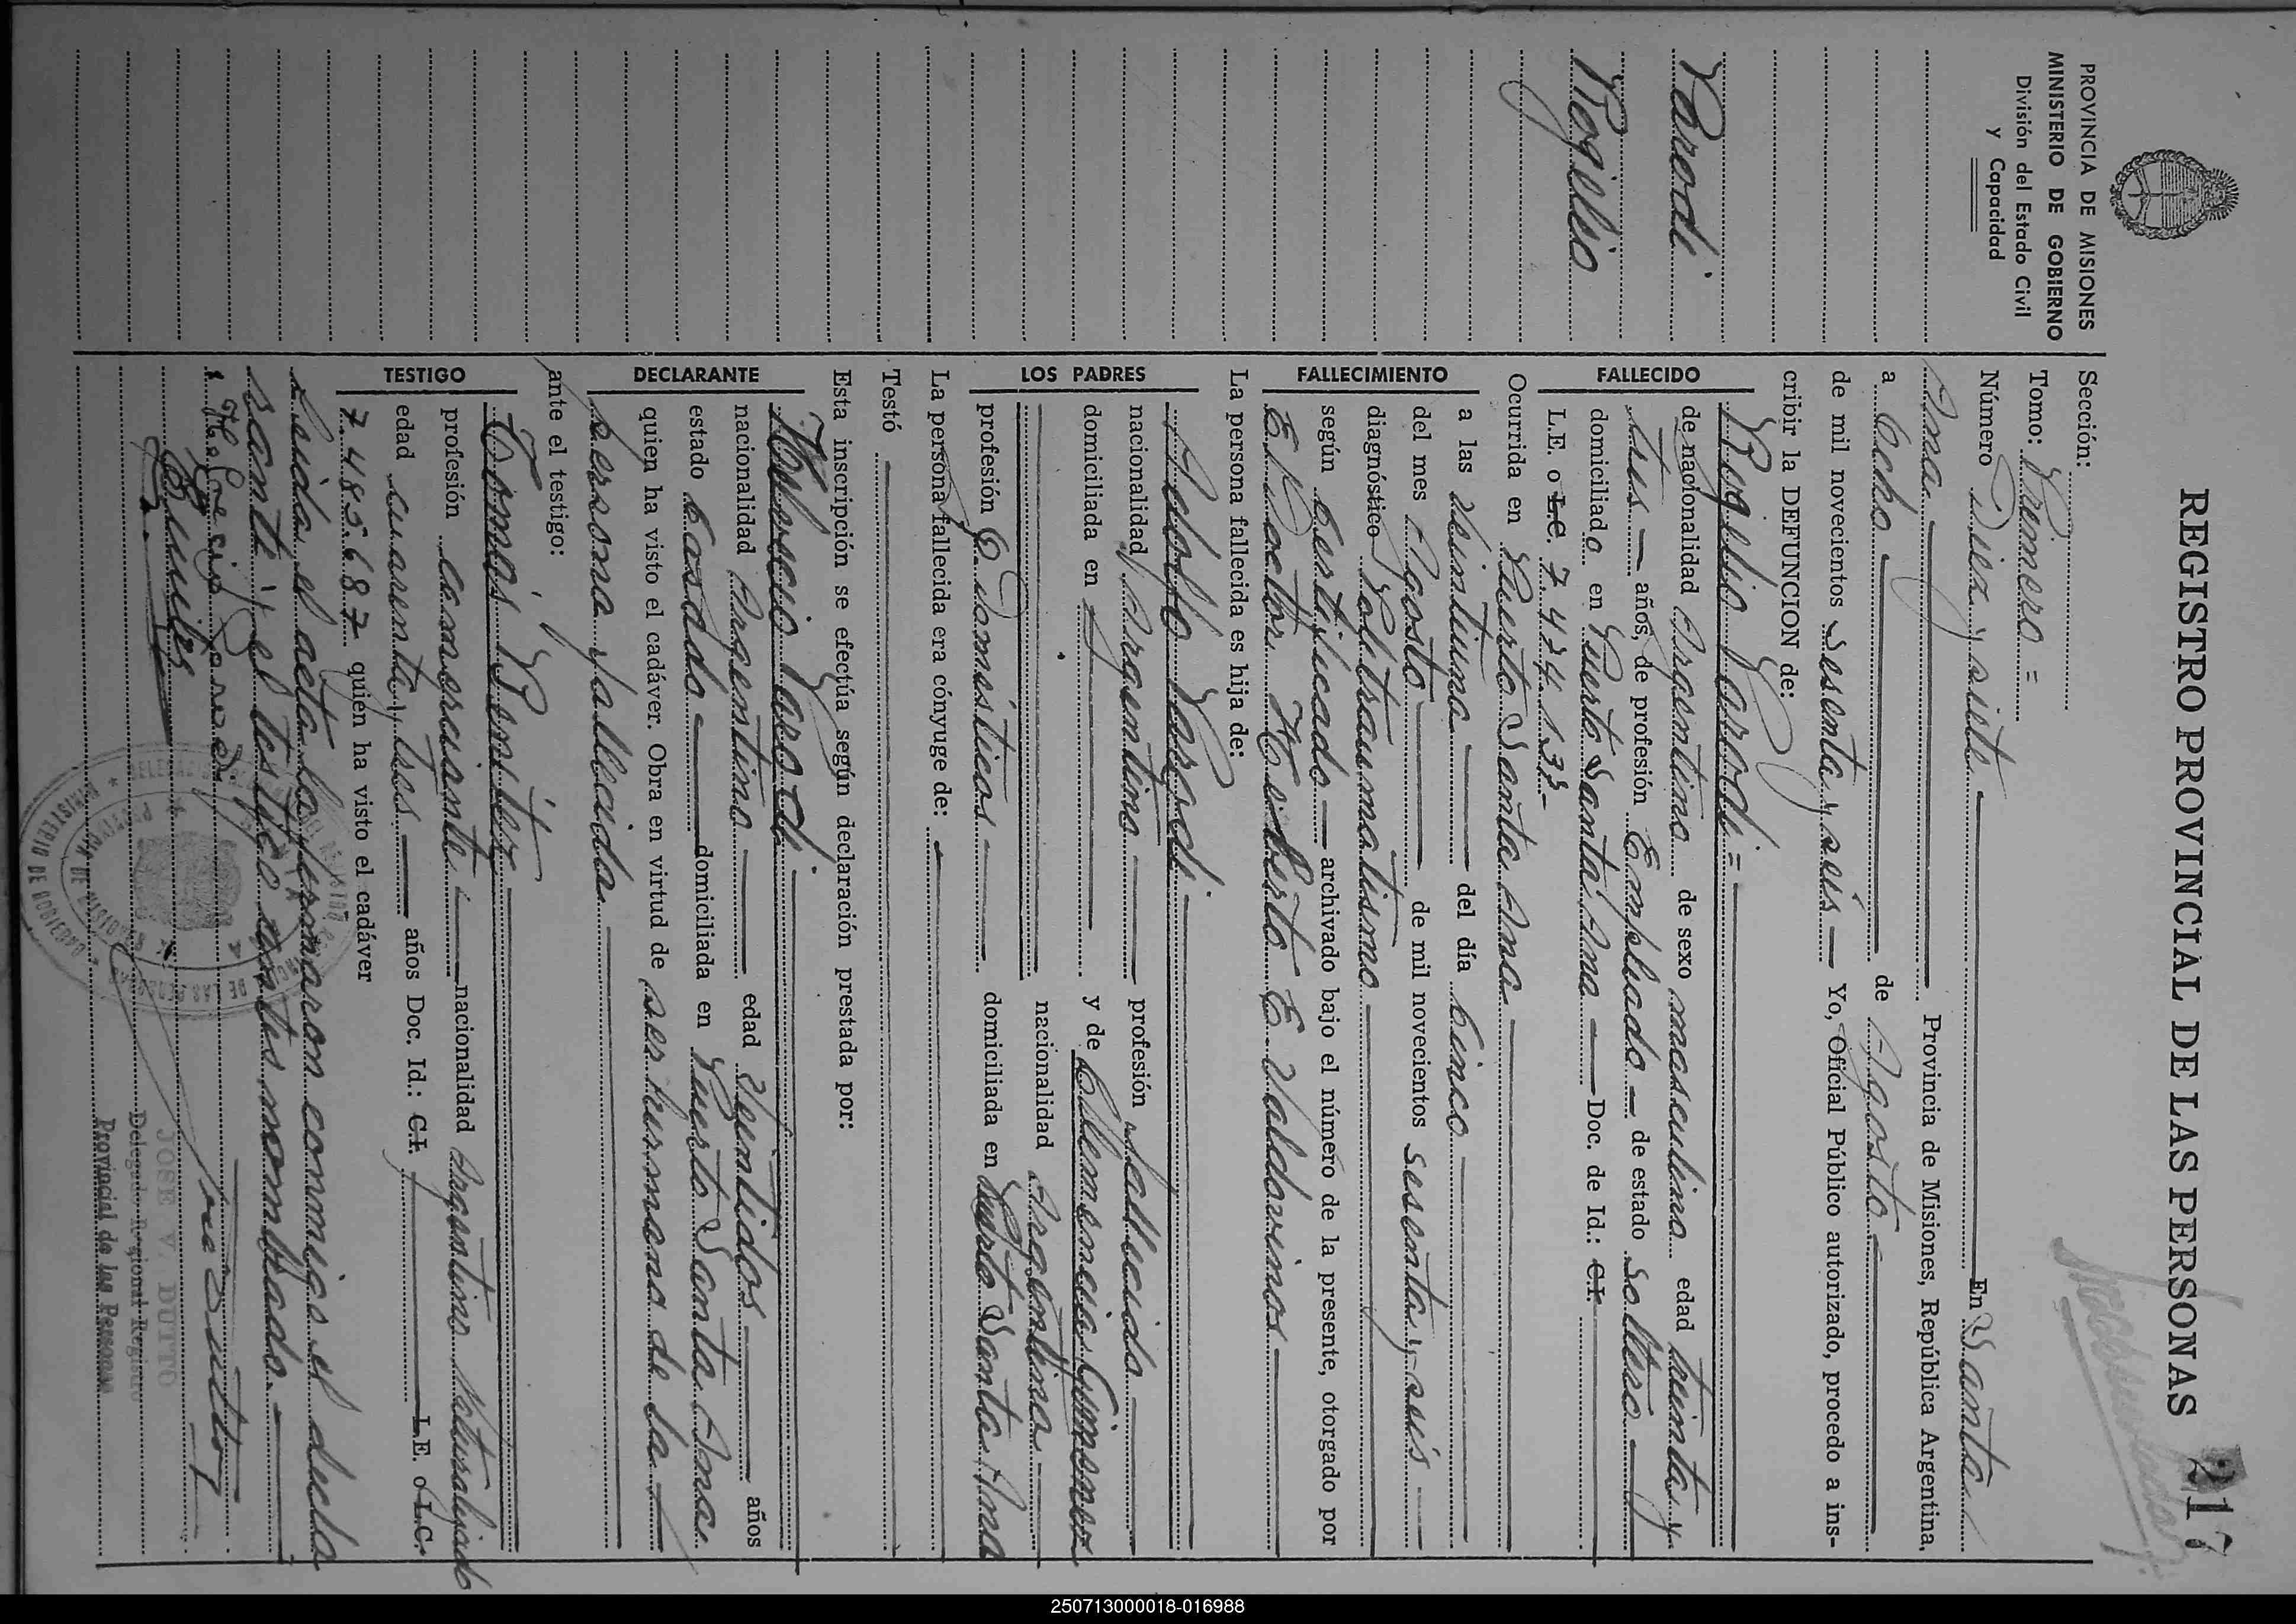 REGISTRO PROVINCIAL DE LAS PERSONAS 217
PROVINCIA DE MISIONES
MINISTERIO DE GOBIERNO
División del Estado Civil
Y Capacidad
Parodi
Rogelio
Sección:
Tomo: Primero =
Número Diez y siete En Santa
Ana Provincia de Misiones, República Argentina,
a Ocho de Agosto
de mil novecientos Sesenta y seis Yo, Oficial Público autorizado, procedo a ins-
cribir la DEFUNCION de:
FALLECIDO
Rogelio Parodi =
de nacionalidad Argentino de sexo masculino edad treinta y
tres años, de profesión Empleado de estado Soltero
domiciliado en Puerto Santa Ana Doc. de Id.: C.I.
L.E. o L.C. 7.424.133-
FALLECIMIENTO
Ocurrida en Puerto Santa Ana
a las Veintiuna del día Cinco
del mes Agosto de mil novecientos sesenta y seis
diagnóstico Politraumatismo
según Certificado archivado bajo el número de la presente, otorgado por
El Doctor Heriberto E. Valdovinos
La persona fallecida es hija de:
LOS PADRES
Adolfo Parodi
nacionalidad Argentino profesión Fallecido
domiciliada en y de Clemencia Gimenez
nacionalidad Argentina
profesión Q. Domésticos domiciliada en Puerto Santa Ana
La persona fallecida era cónyuge de:
Testó
Esta inscripción se efectúa según declaración prestada por:
DECLARANTE
Parodi
nacionalidad Argentino edad Veintidos años
estado Casado domiciliada en Puerto Santa Ana
quien ha visto el cadáver. Obra en virtud de ser hermano de la
persona fallecida
ante el testigo:
TESTIGO
Tomás Benítez
profesión comerciante nacionalidad Argentino Naturalizado
edad cuarenta y tres años Doc. Id.: C.I. L.E. o L.C.
7.485.687 quien ha visto el cadáver
Leída el acta la firmaron conmigo el decla
rante y el testigo antes nombrado.-
Parodi
José Dutto
JOSE V. DUTTO
Delegado Regional Registro
Provincial de las Personas
MINISTERIO DE GOBIERNO
250713000018-016988